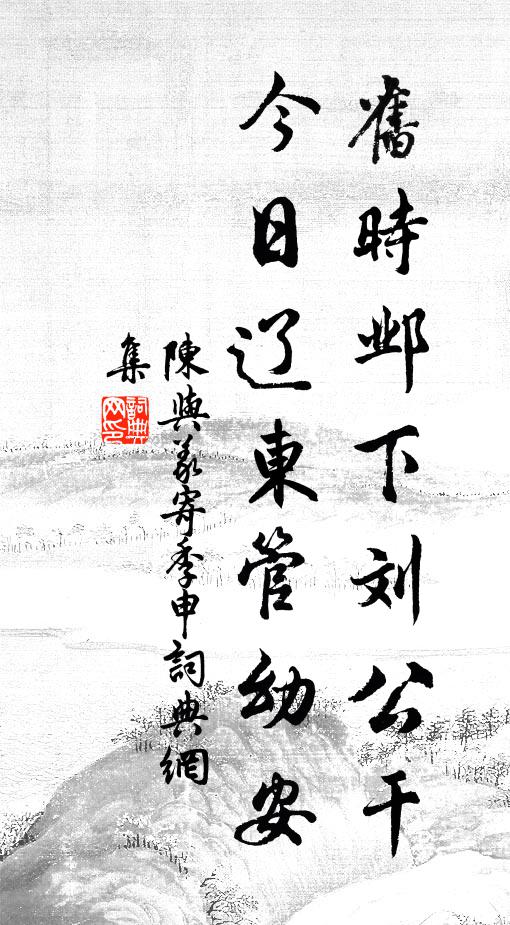 舊時邺下刘公干
今日辽東管幼安
陳與義寄季申詞典網
集
詞典網印